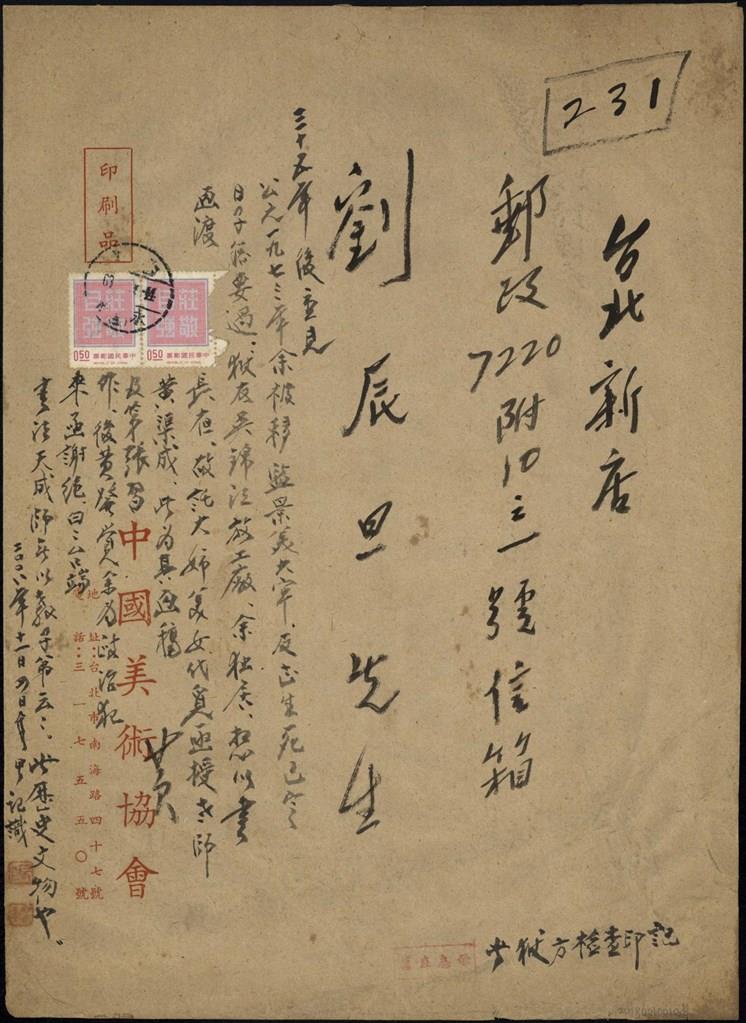 231
台北新店
郵政7220附10之一號信箱
劉辰旦先生
三十五年後重見
公元一九七三年余被移監景美大牢、反正生死已令
日子落要過、獄友吳錦江放工廠、余独居、想以書
画渡
長夜、敬託大姉美女代覓函授老師
黃渠成、此為其函稿
後黃發覺余為政治犯
來函謝絕、曰三
書法天成師无以教子弟云云、此歷史文物也。
二〇〇八年十一日四日 記識
印刷品
莊敬自強
莊敬自強
中華民國郵票
中華民國郵票
REPUBLIC OF CHINA
REPUBLIC OF CHINA
0.50
0.50
中國美術協會
黃
地址:台北市南海路四十七號
話:三一七五五〇號
此獄方檢查印記